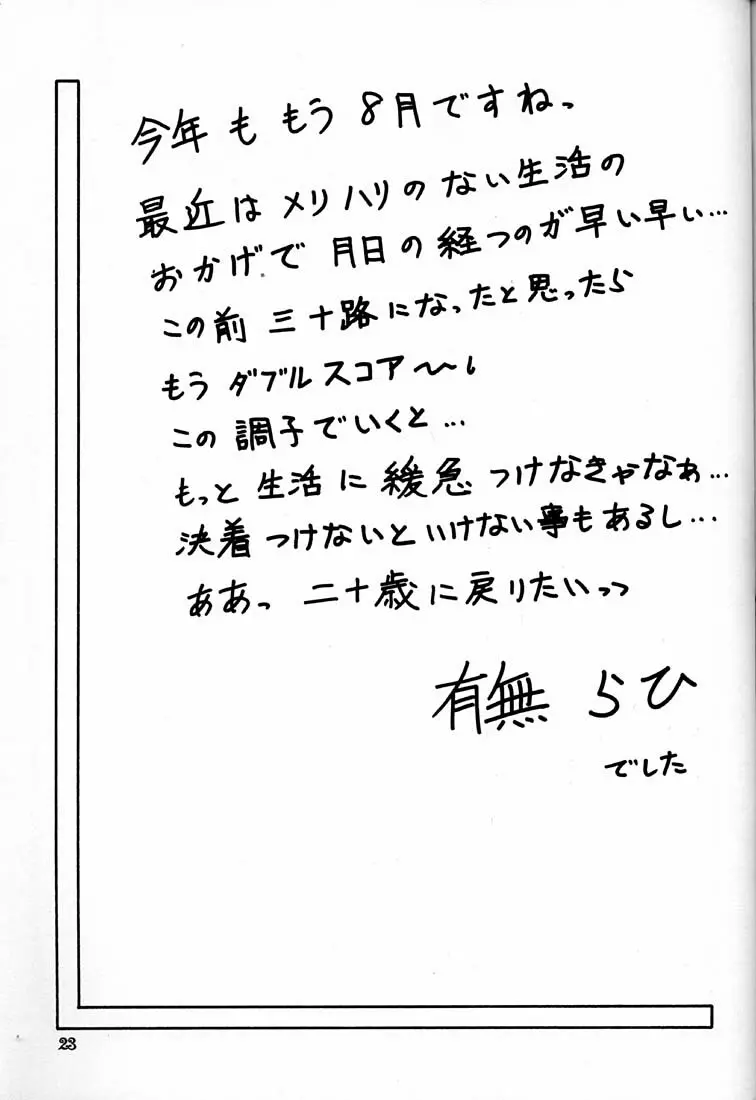 今年ももう8月ですねっ
最近はメリハリのない生活の
おかげで月日の経つのが早い早い…
この前三十路になったと思ったら
もうダブルスコア〜〜!
この調子でいくと…
もっと生活に緩急つけなきゃなぁ…
決着つけないといけない事もあるし…
ああっ 二十歳に戻りたいっっ
有無らひ
でした
23